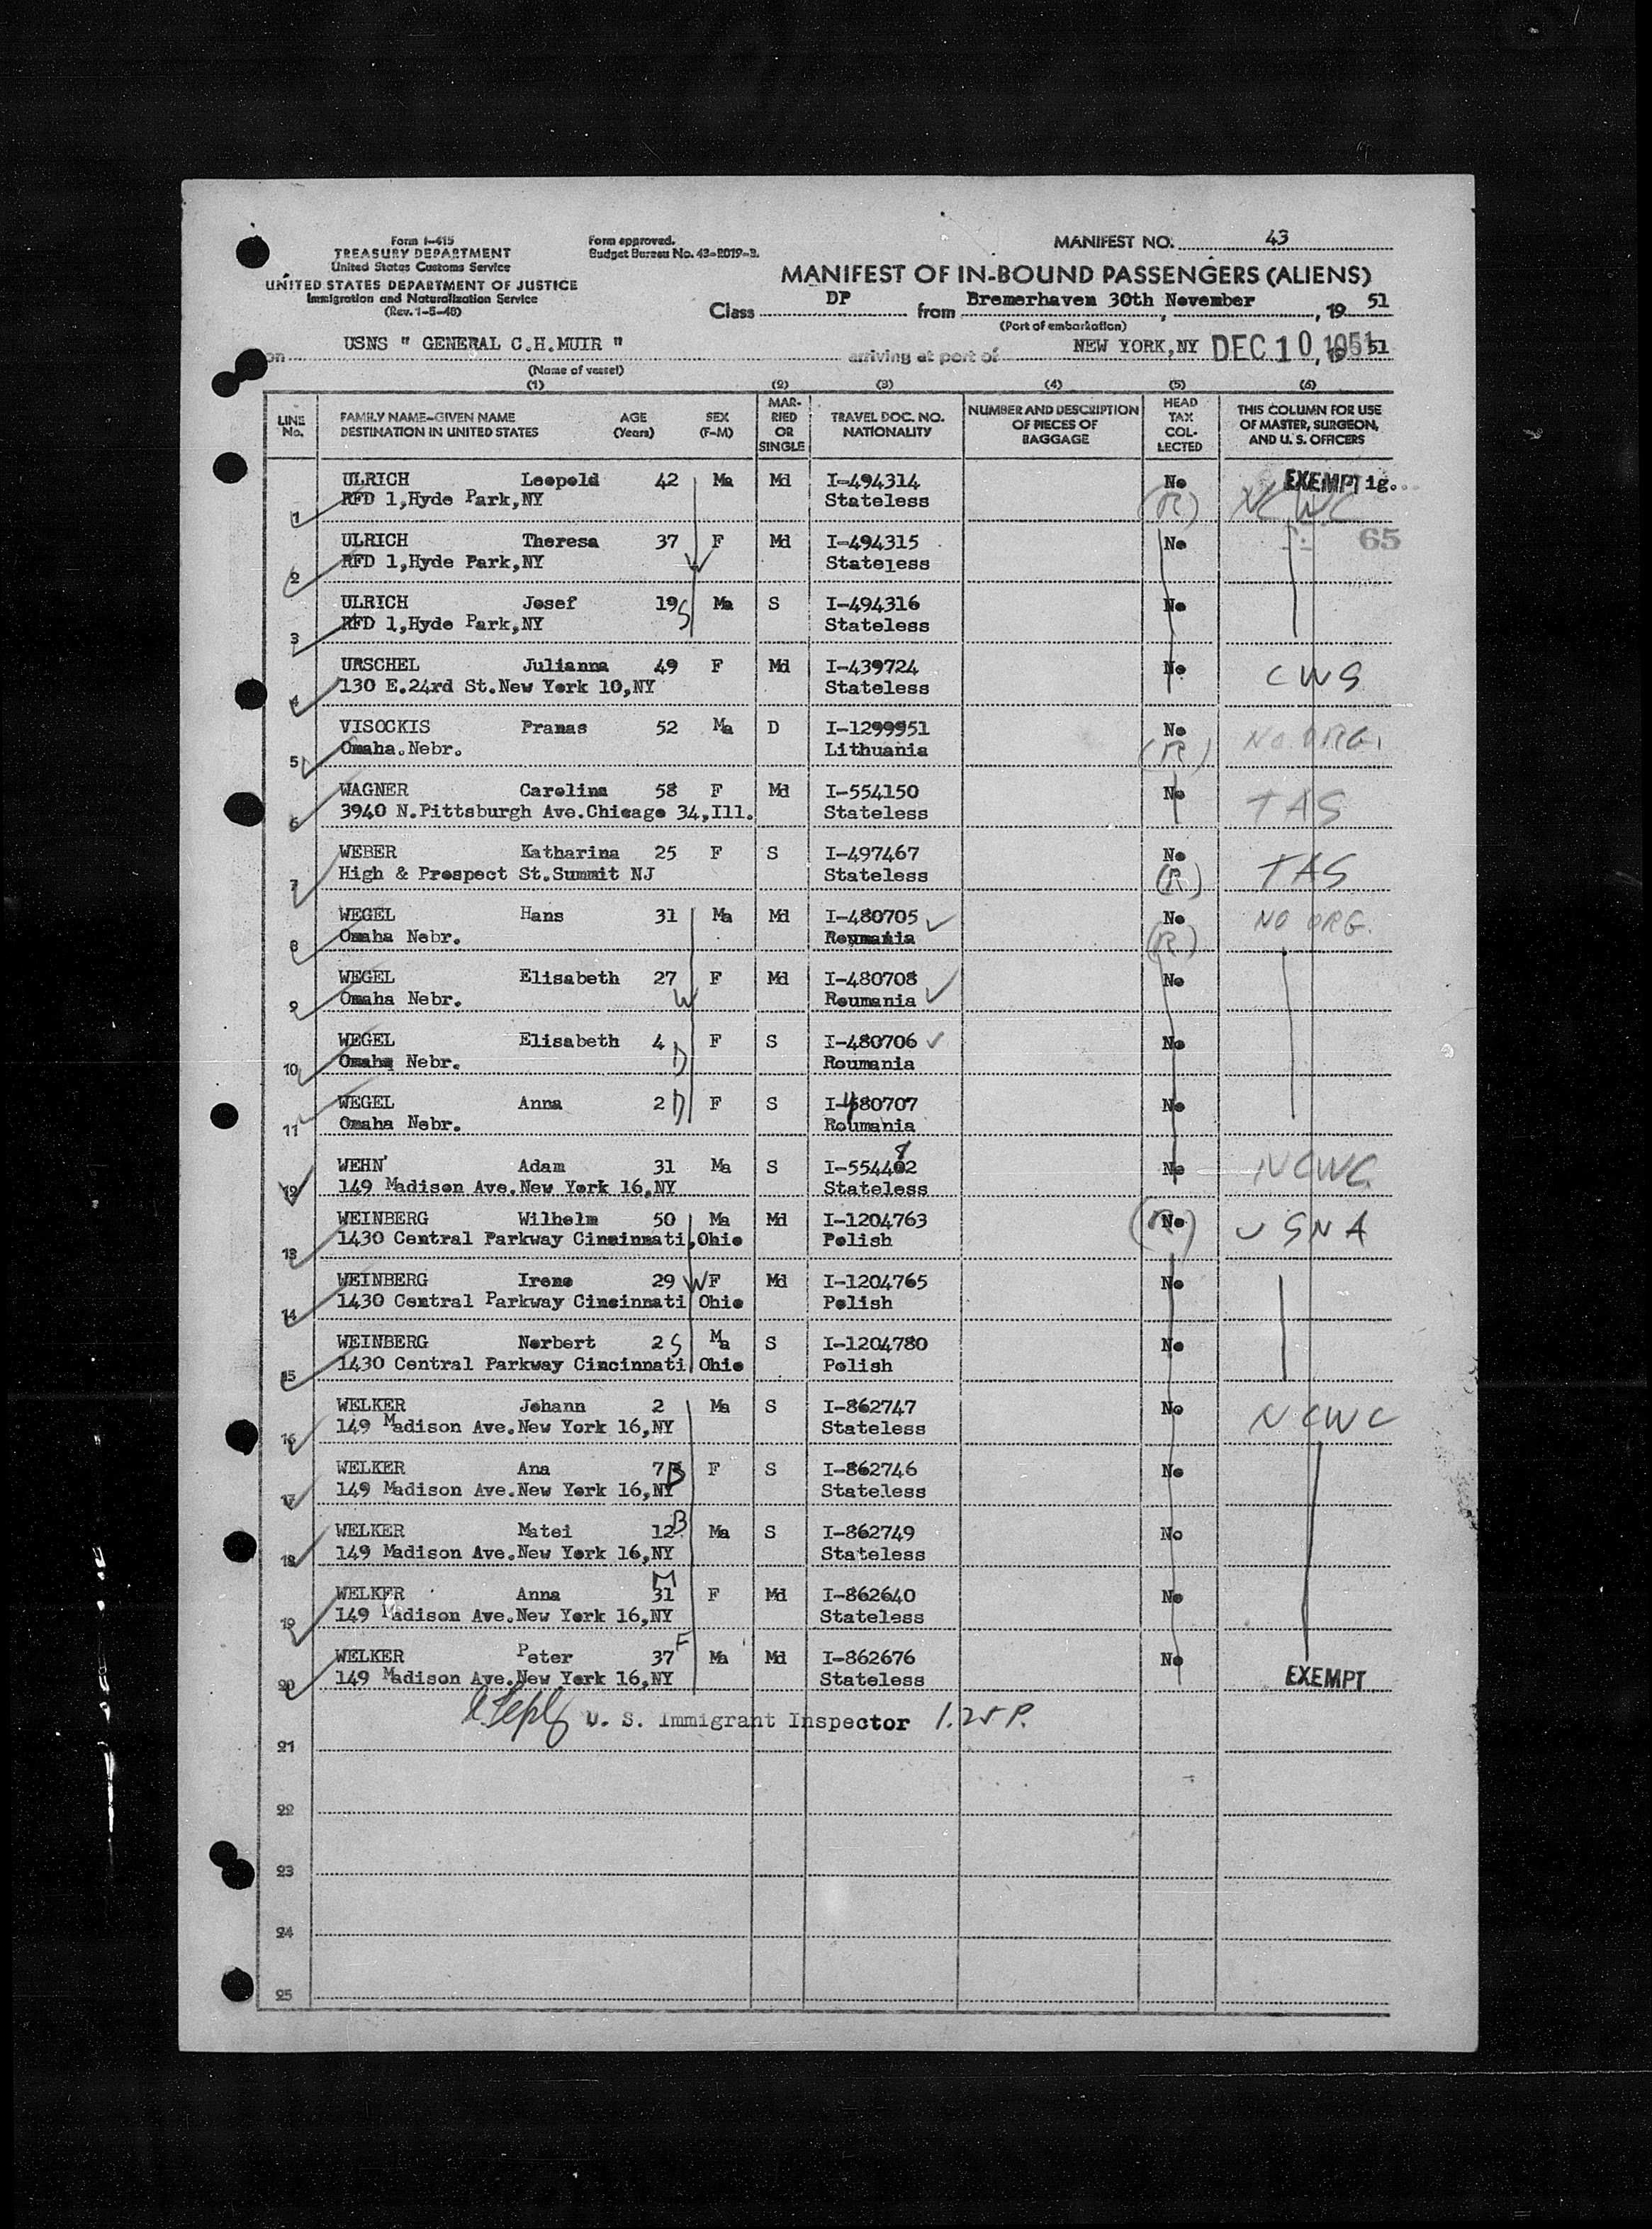 Form I-415
TREASURY DEPARTMENT
United States Customs Service
UNITED STATES DEPARTMENT OF JUSTICE
Immigration and Naturalization Service
(Rev. 1-5-48)
Form approved.
Budget Bureau No. 43-R019-3.
MANIFEST NO. 43
MANIFEST OF IN-BOUND PASSENGERS (ALIENS)
Class DP from Bremerhaven 30th November, 19 51
(Port of embarkation)
on USNS " GENERAL C.H.MUIR " arriving at port of NEW YORK,NY DEC 10 1951, 19 51
(Name of vessel)
(1) (2) (3) (4) (5) (6)
LINE No. FAMILY NAME-GIVEN NAME DESTINATION IN UNITED STATES AGE (Years) SEX (F-M) MARRIED OR SINGLE TRAVEL DOC. NO. NATIONALITY NUMBER AND DESCRIPTION OF PIECES OF BAGGAGE HEAD TAX COLLECTED THIS COLUMN FOR USE OF MASTER, SURGEON, AND U. S. OFFICERS
ULRICH Leopold 42 Ma Md I-494314 No EXEMPT ig.
1 RFD 1,Hyde Park,NY Stateless (R) NCWC
ULRICH Theresa 37 F Md I-494315 No 65
2 RFD 1,Hyde Park,NY W Stateless
ULRICH Josef 19 S Ma S I-494316 No
3 RFD 1,Hyde Park,NY Stateless
URSCHEL Julianna 49 F Md I-439724 No CWS
4 130 E.24rd St.New York 10,NY Stateless
VISOCKIS Pranas 52 Ma D I-1299951 No NO ORG.
5 Omaha.Nebr. Lithuania (R)
WAGNER Carolina 58 F Md I-554150 No TAS
6 3940 N.Pittsburgh Ave.Chicago 34,Ill. Stateless
WEBER Katharina 25 F S I-497467 No TAS
7 High & Prospect St.Summit NJ Stateless (R)
WEGEL Hans 31 Ma Md I-480705 No NO ORG.
8 Omaha Nebr. Roumania (R)
WEGEL Elisabeth 27 F Md I-480708 No
9 Omaha Nebr. W Roumania
WEGEL Elisabeth 4 F S I-480706 No
10 Omaha Nebr. D Roumania
WEGEL Anna 2 D F S I-480707 No
11 Omaha Nebr. Roumania
WEHN Adam 31 Ma S I-554482 No NCWC
12 149 Madison Ave.New York 16,NY Stateless
WEINBERG Wilhelm 50 Ma Md I-1204763 (R) No USNA
13 1430 Central Parkway Cincinnati,Ohio Polish
WEINBERG Irene 29 W F Md I-1204765 No
14 1430 Central Parkway Cincinnati Ohio Polish
WEINBERG Norbert 2 S Ma S I-1204780 No
15 1430 Central Parkway Cincinnati Ohio Polish
WELKER Johann 2 Ma S I-862747 No NCWC
16 149 Madison Ave.New York 16,NY Stateless
WELKER Ana 7 B F S I-862746 No
17 149 Madison Ave.New York 16,NY Stateless
WELKER Matei 12 B Ma S I-862749 No
18 149 Madison Ave.New York 16,NY Stateless
WELKER Anna 31 M F Md I-862640 No
19 149 Madison Ave.New York 16,NY Stateless
WELKER Peter 37 F Ma Md I-862676 No
20 149 Madison Ave.New York 16,NY Stateless EXEMPT
U. S. Immigrant Inspector 1.25 P.
21
22
23
24
25